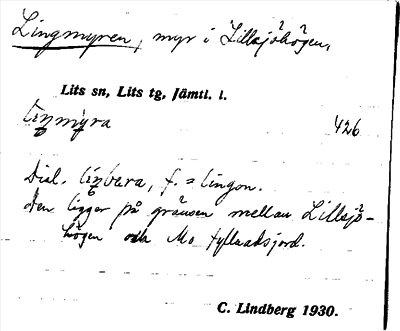 Lingmyren, myr i Lillsjöhögen,
Lits sn, Lits tg, Jämtl. l.
liŋmy̆ra 426
Dial. líŋbara, f. = lingon.
Den ligger på gränsen mellan Lillsjö-
högen och Mo fyllnadsjord.
C. Lindberg 1930.